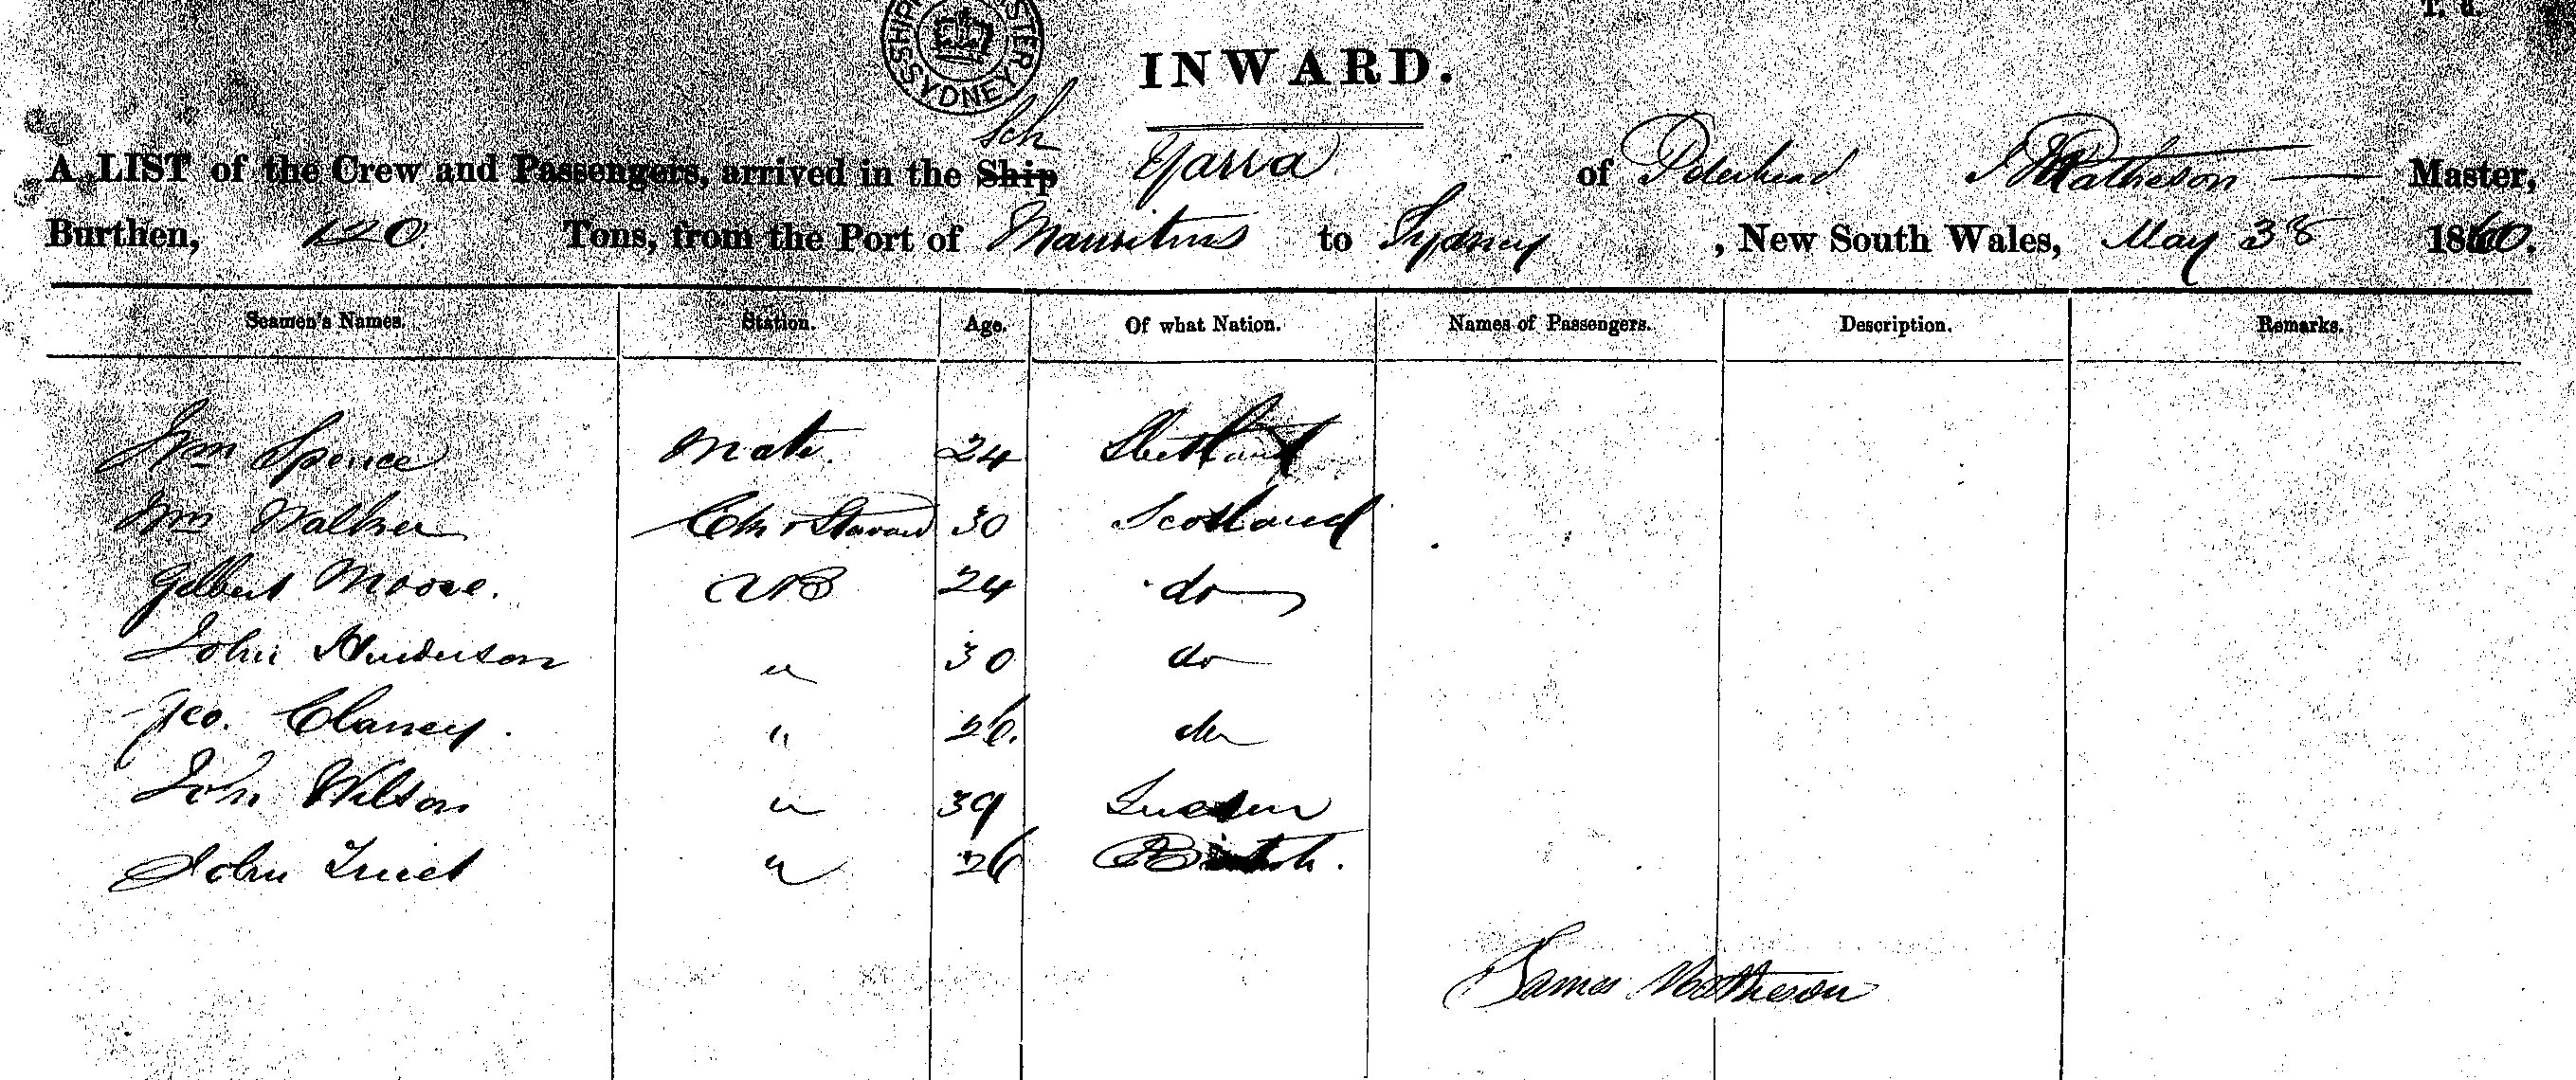 SYDNEY
INWARD.
Sch
A LIST of the Crew and Passengers, arrived in the Ship Yarra of Peterhead J Matheson Master,
Burthen, 120 Tons, from the Port of Mauritius to Sydney, New South Wales, May 38 1860.
Seamen's Names. Station. Age. Of what Nation. Names of Passengers. Description. Remarks.
Wm Spence Mate. 24 Shetland
Wm Walker Ck & Steward 30 Scotland
Gilbert Moore. AB 24 do
John Henderson " 30 do
Geo. Clancy. " 26. do
John Wilson " 39 Sweden
John " 26 British.
James Matheson